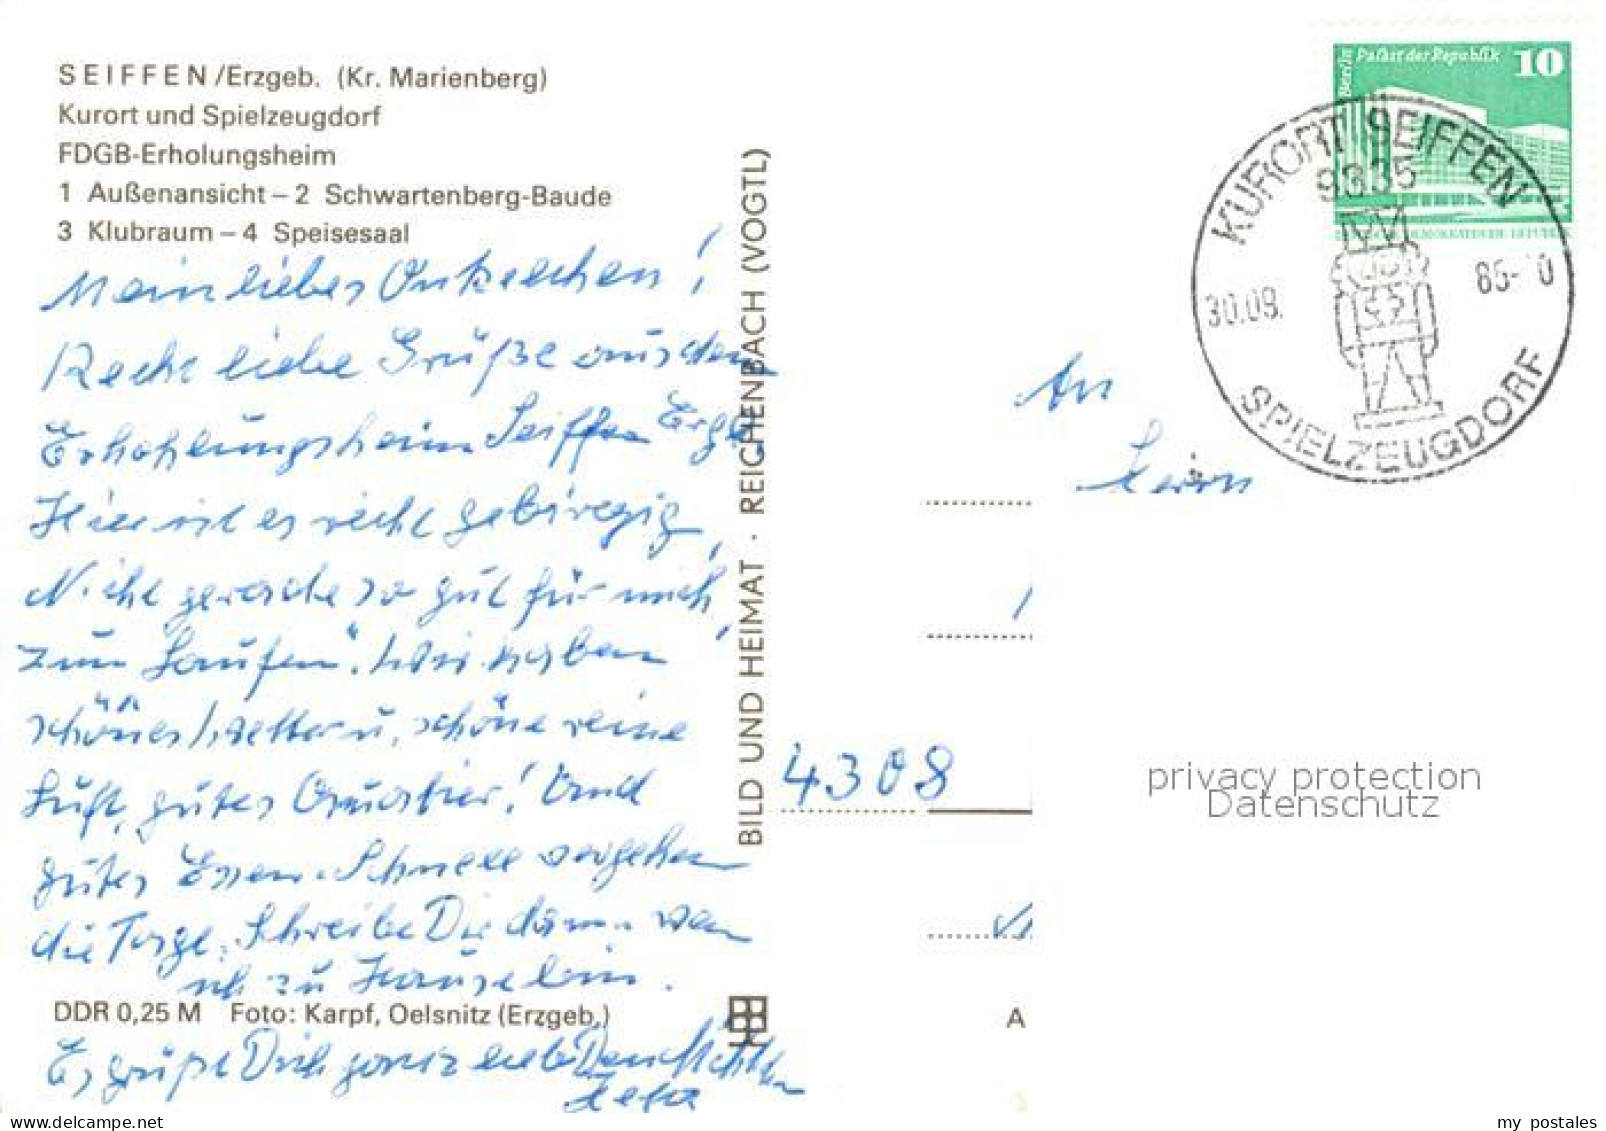 SEIFFEN/Erzgeb. (Kr. Marienberg)
Kurort und Spielzeugdorf
FDGB-Erholungsheim
1 Außenansicht – 2 Schwartenberg-Baude
3 Klubraum – 4 Speisesaal
Mein liebes Onkelchen!
Recht liebe Grüße aus dem
Erhohlungsheim Seiffen Erzg.
Hier ist es recht gebirgig,
Nicht gerade so gut für mich,
zum Laufen". Wir haben
schönes Wetter u. schöne reine
Luft, gutes Quartier! Und
gutes Essen. Schnell vergehen
die Tage. Schreibe Dir dann wen
ich zu Hause bin.
DDR 0,25 M Foto: Karpf, Oelsnitz (Erzgeb.)
Es grüßt Dich ganz lieb Dein
BILD UND HEIMAT · REICHENBACH (VOGTL)
Berlin Palast der Republik 10
KURORT SEIFFEN
9335
30.09. 85-10
SPIELZEUGDORF
An
Herrn
4308
privacy protection
Datenschutz
A
my postales